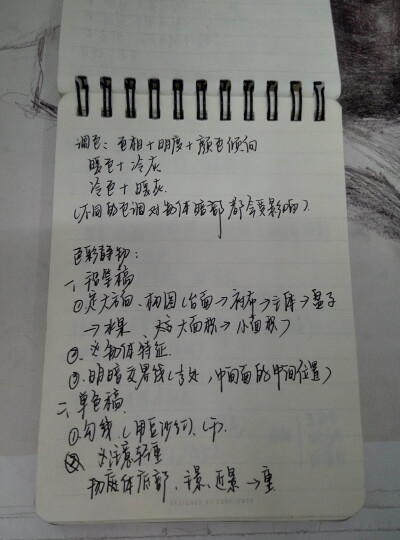 调色：色相+明度+颜色倾向
暖色+冷灰
冷色+暖灰
(不同的色调对物体暗部都会受影响).
色彩静物：
一、铅笔稿
①先大方面、构图(台面→衬布→主体→盘子
→水果、大面积→小面积)
②、物体特征.
③.明暗交界线(、中间面的中间位置)
二、单色稿.
①勾线(用豆沙红).
②注意轻重
物底体底部、主景、近景→重